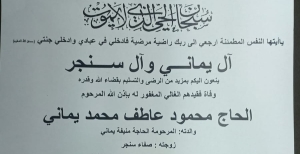 سبحان الحي الذي لا يموت
ياأيتها النفس المطمئنة ارجعي الى ربك راضية مرضية فادخلي في عبادي وادخلي جنتي
آل يماني وآل سنجر
ينعون اليكم بمزيد من الرضى والتسليم بقضاء الله وقدره
وفاة فقيدهم الغالي المغفور له بإذن الله المرحوم
الحاج محمود عاطف محمد يماني
والدته: المرحومة الحاجة منيفة يماني
زوجته : صفاء سنجر